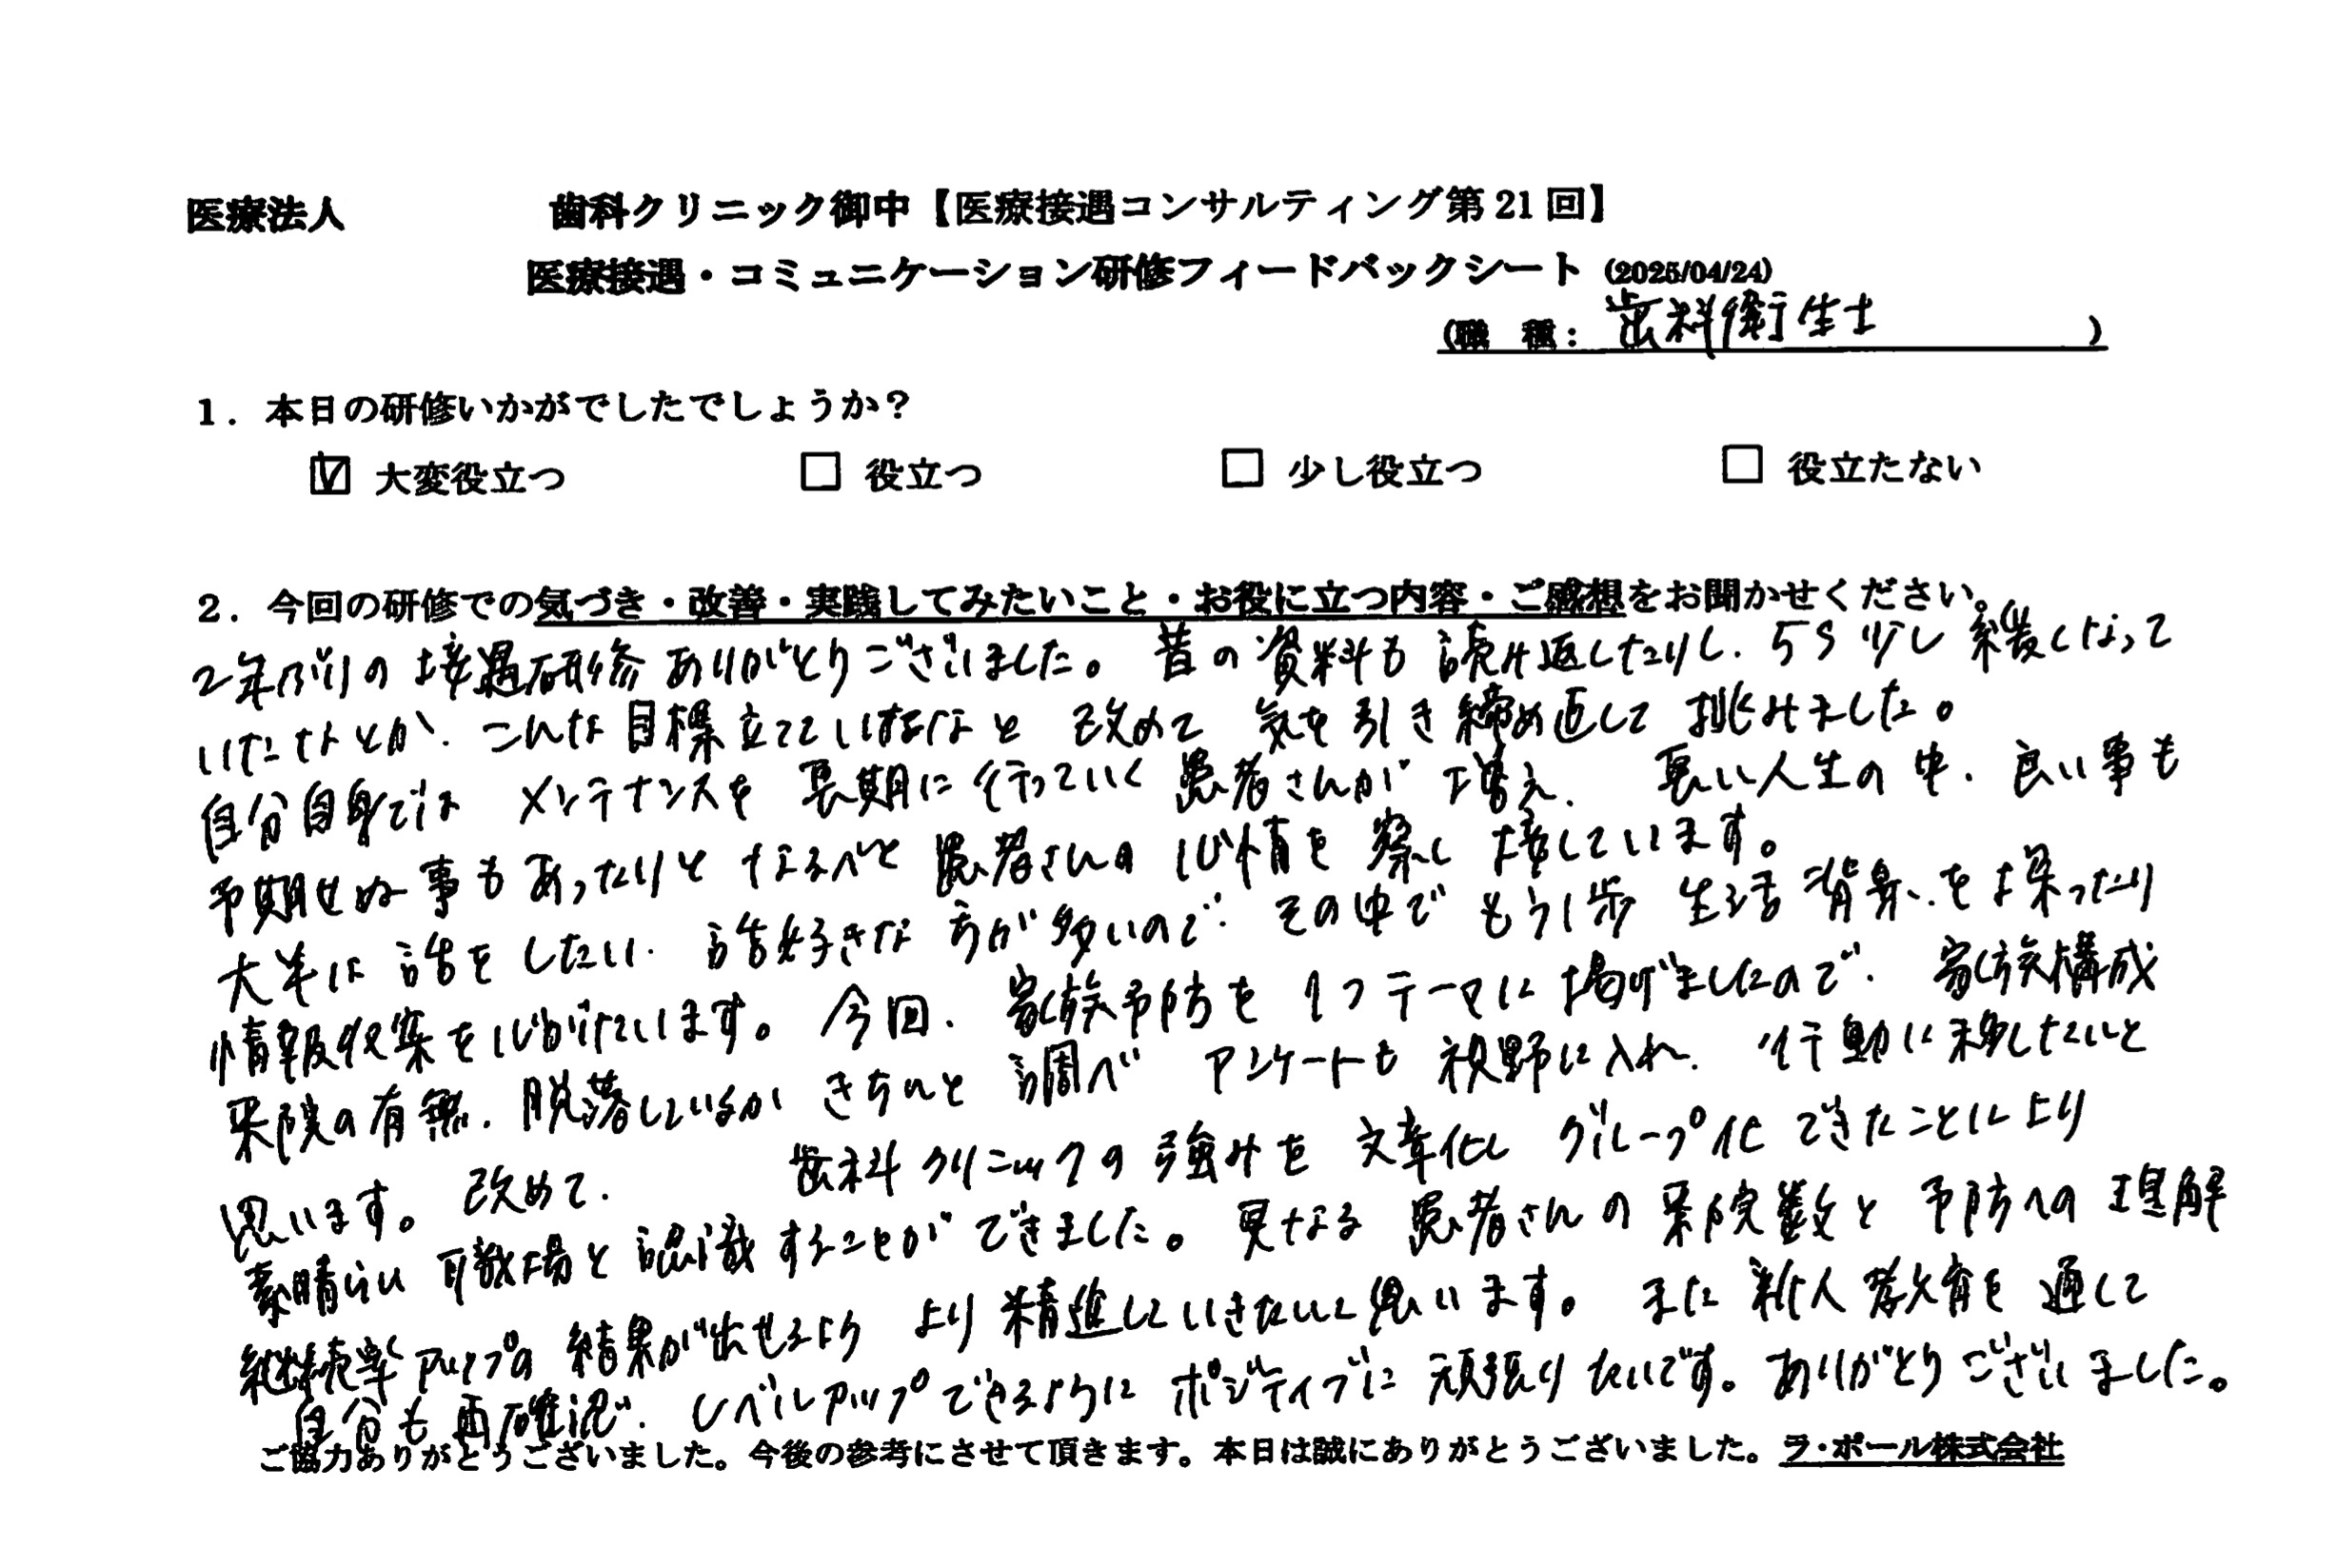 医療法人 歯科クリニック御中【医療接遇コンサルティング第21回】
医療接遇・コミュニケーション研修フィードバックシート (2025/04/24)
(職 種: 歯科衛生士 )
1. 本日の研修いかがでしたでしょうか?
☑ 大変役立つ □ 役立つ □ 少し役立つ □ 役立たない
2. 今回の研修での気づき・改善・実践してみたいこと・お役に立つ内容・ご感想をお聞かせください。
2年ぶりの接遇研修ありがとうございました。昔の資料も読み返したりし、5S少し緩くなって
いたなとか、こんな目標立てていたなと 改めて 気を引き締め直して 挑みました。
自分自身では メンテナンスを 長期に行っていく患者さんが 増え、長い人生の中、良い事も
予期せぬ事もあったりと なるべく患者さんの心情を察し 接しています。
大半は話をしたい、話好きな方が多いので、その中でもう1歩 生活背景を探ったり
情報収集を心がけています。今回、家族予防を1つテーマに掲げましたので、家族構成
来院の有無、脱落しているか きちんと調べ アンケートも視野に入れ、行動に移したいと
思います。改めて、 歯科クリニックの強みを 文章化し グループ化できたことにより
素晴らしい職場と認識することができました。更なる患者さんの来院数と予防への理解
継続率アップの結果が出せるよう より精進していきたいと思います。また新人教育を通して
自分も再確認で、レベルアップできるように ポジティブに頑張りたいです。ありがとうございました。
ご協力ありがとうございました。今後の参考にさせて頂きます。本日は誠にありがとうございました。ラ・ポール株式会社